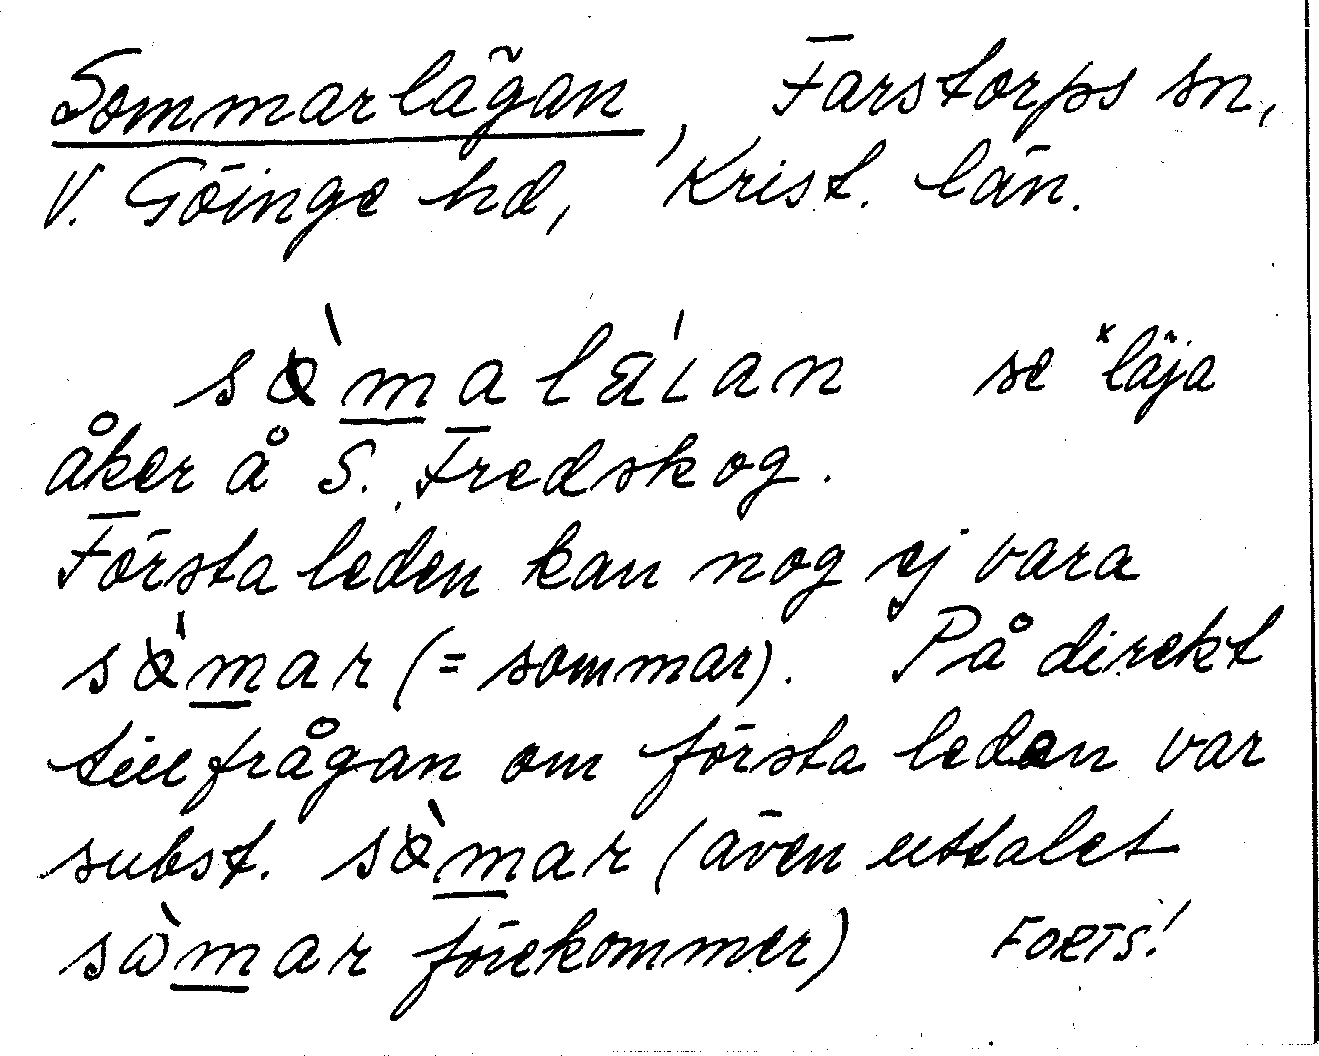 Sommarlägan, Farstorps sn,
V. Göinge hd, Krist. län.
se *läja
åker å S. Fredskog.
Första leden kan nog ej vara
(= sommar). På direkt
tillfrågan om första leden var
subst. (även uttalet
förekommer) FORTS!